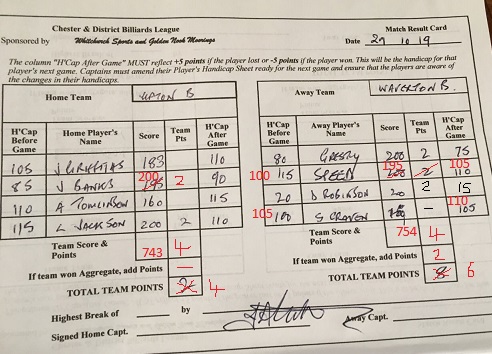 Chester & District Billiards League
Match Result Card
Sponsored by Whitchurch Sports and Golden Nook Moorings
Date 27 10 19
The column "H'Cap After Game" MUST reflect +5 points if the player lost or -5 points if the player won. This will be the handicap for that
player's next game. Captains must amend their Player's Handicap Sheet ready for the next game and ensure that the players are aware of
the changes in their handicaps.
Home Team UPTON B
Away Team WAVERTON B.
H'Cap Before Game Home Player's Name Score Team Pts H'Cap After Game
105 J GRIFFITHS 183 110
85 J BANKS 200 195 2 90
110 A TOMLINSON 160 115
115 L JACKSON 200 2 110
Team Score & Points 743 4
If team won Aggregate, add Points —
TOTAL TEAM POINTS 2 4
H'Cap Before Game Away Player's Name Score Team Pts H'Cap After Game
80 GRESTY 200 2 75
100 115 SPEED 195 200 2 105 110
20 D ROBINSON 2 15
105 100 S CRAVEN — 110 105
Team Score & Points 754 4
If team won Aggregate, add Points 2
TOTAL TEAM POINTS 8 6
Highest Break of — by
Signed Home Capt.
Away Capt.